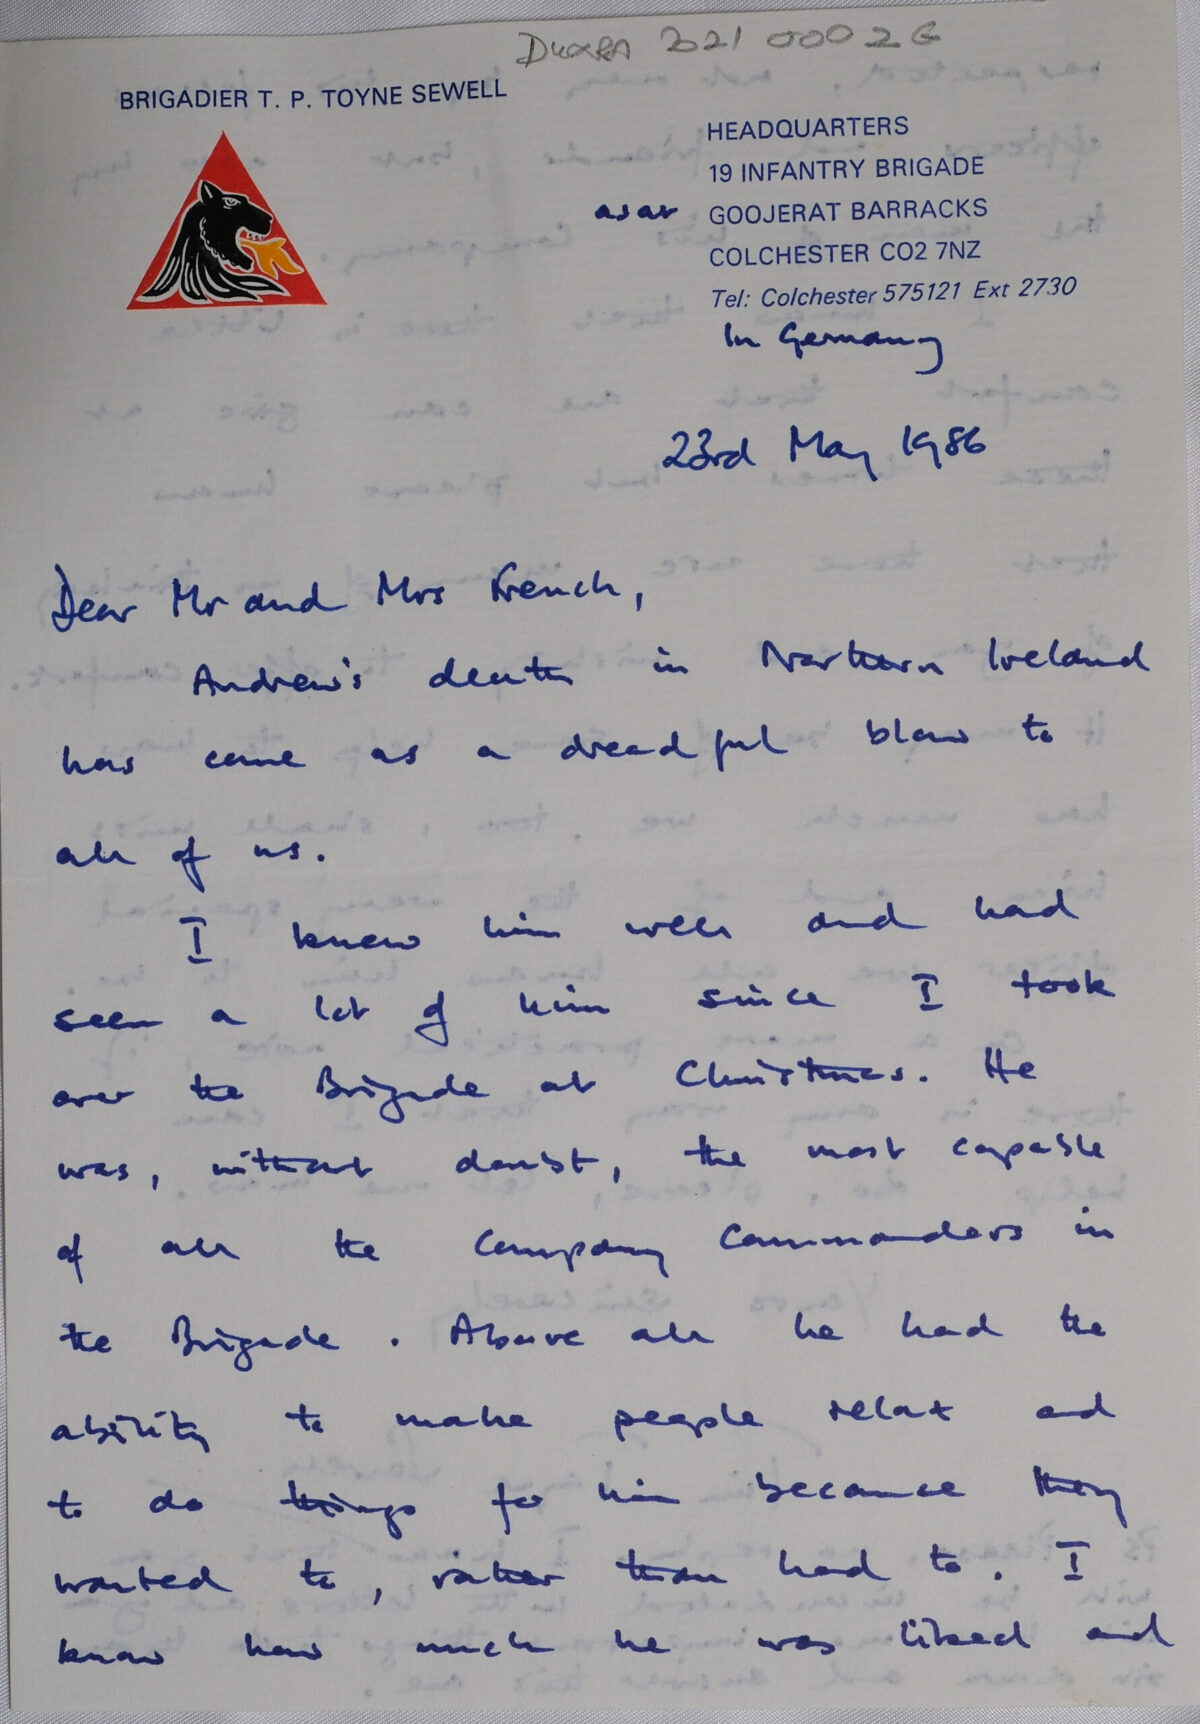 DUXBA 2021 0002 6
BRIGADIER T. P. TOYNE SEWELL
HEADQUARTERS
19 INFANTRY BRIGADE
as at GOOJERAT BARRACKS
COLCHESTER CO2 7NZ
Tel: Colchester 575121 Ext 2730
In Germany
23rd May 1986
Dear Mr and Mrs French,
Andrew's death in Northern Ireland
has come as a dreadful blow to
all of us.
I knew him well and had
seen a lot of him since I took
over the Brigade at Christmas. He
was, without doubt, the most capable
of all the Company Commanders in
the Brigade. Above all he had the
ability to make people relax and
to do things for him because they
wanted to, rather than had to. I
know how much he was liked and